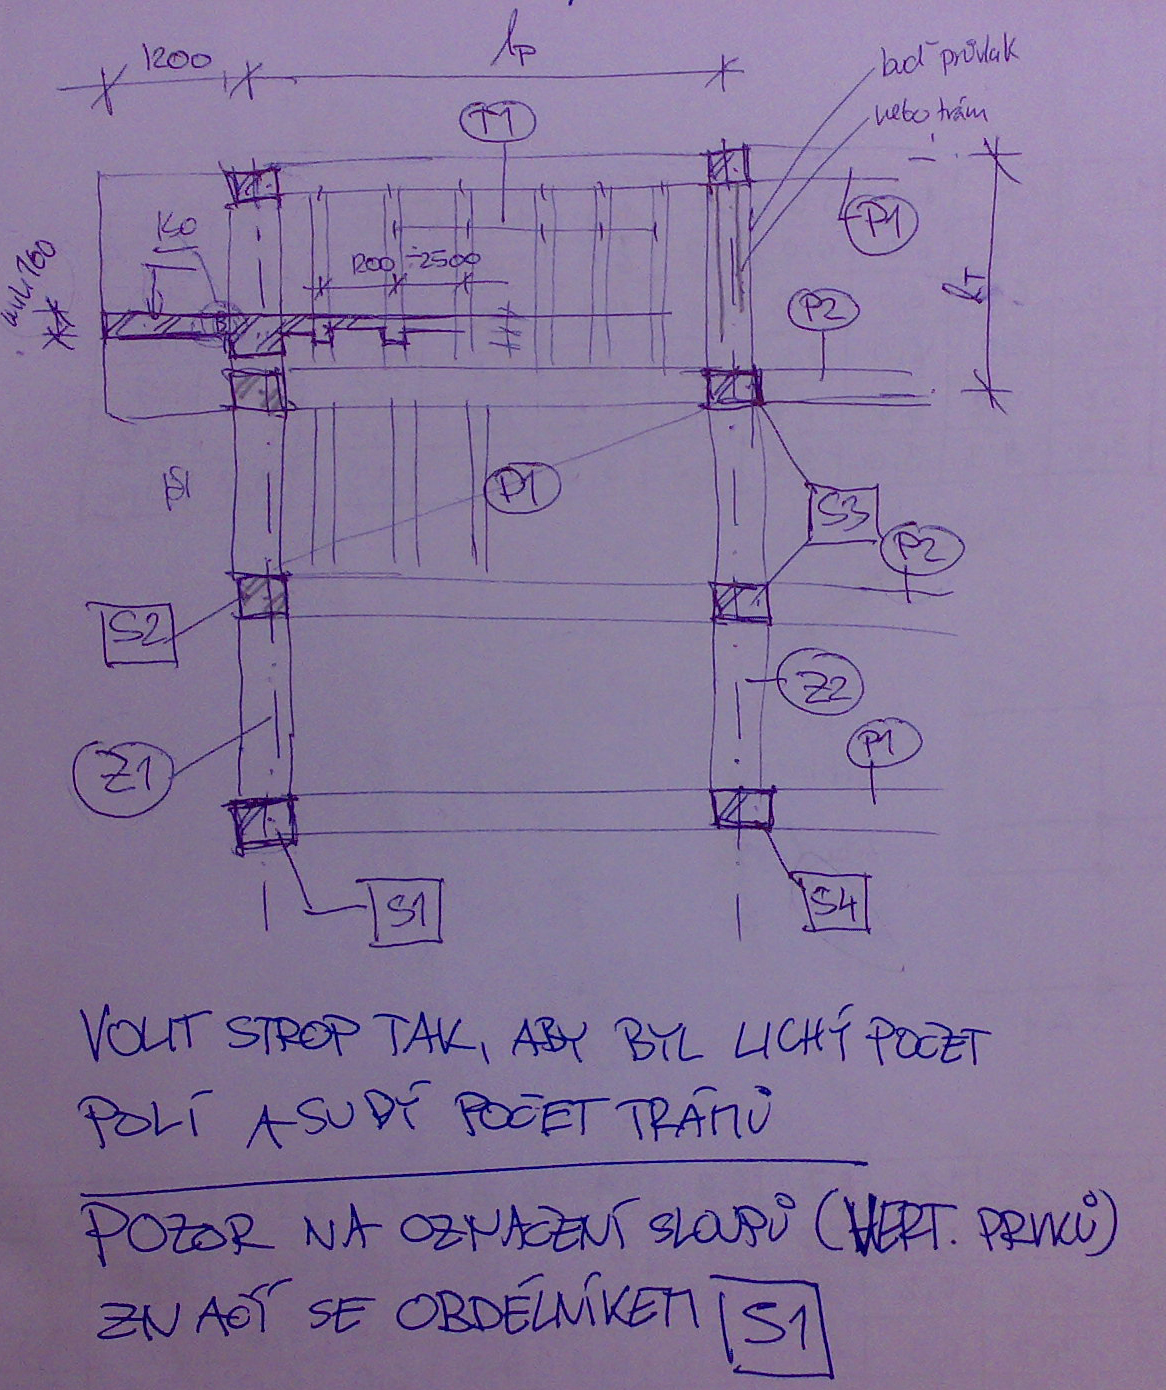 1200
lp
buď průvlak
nebo trám
T1
P1
K0
1200 ÷ 2500
lT
P2
P1
S3
P2
S2
Z2
Z1
P1
S1
S4
VOLIT STROP TAK, ABY BYL LICHÝ POČET
POLÍ A SUDÝ POČET TRÁMŮ
POZOR NA OZNAČENÍ SLOUPŮ (VERT. PRVKŮ)
ZNAČÍ SE OBDÉLNÍKEM S1